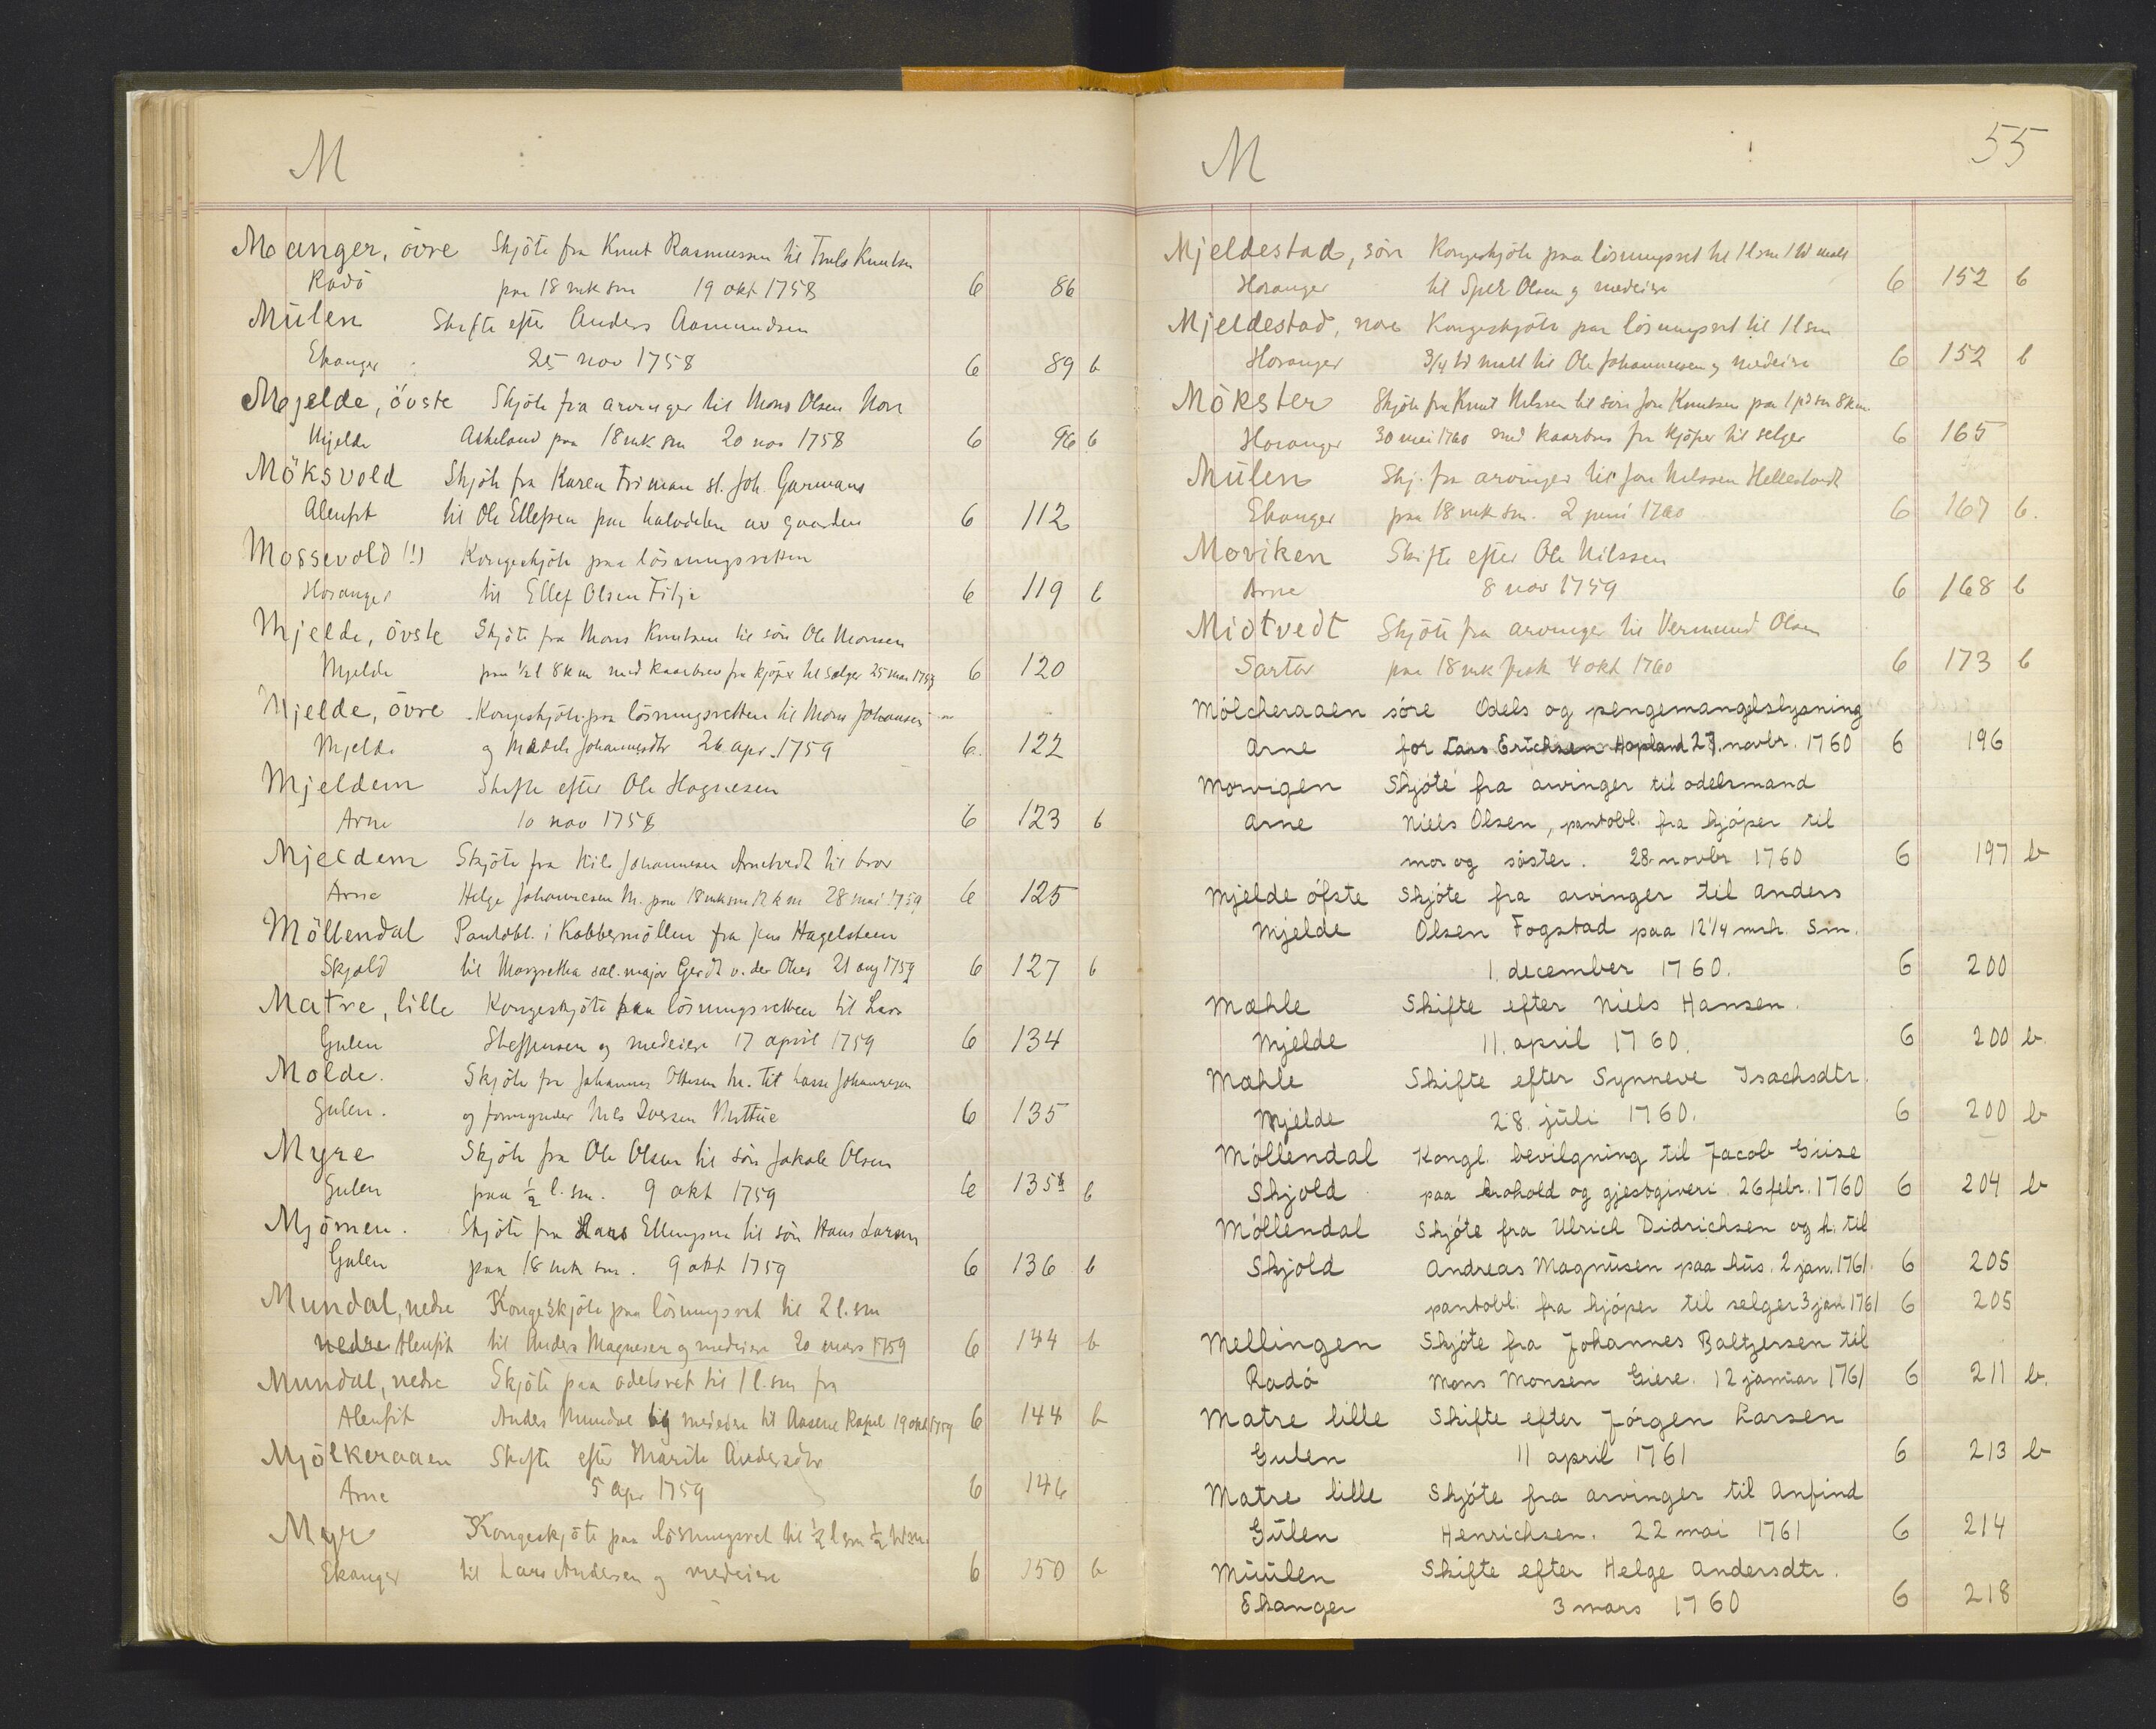 M
Manger, övre Skjöte fra Knut Rasmussen til Truls Knutsen
Radö paa 18 mk sm 19 okt 1758 6 86
Mülen Skifte efter Anders Aamundsen
Ekanger 25 nov 1758 6 89 b
Mjelde, övste Skjöte fra arvinger til Mons Olsen Nore
Mjelde Askeland paa 18 mk sm 20 nov 1758 6 96 b
Möksvold Skjöte fra Karen Friman sl. Joh. Garmans
Alenfit til Ole Ellefsen paa halvdelen av gaarden 6 112
Mossevold (!) Kongeskjöte paa lösningsretten
Hosanger til Ellef Olsen Titje 6 119 b
Mjelde, övste Skjöte fra Mons Knutsen til sön Ole Monsen
Mjelde paa ½ l 8 k sm med kaarbrev fra kjöper til sælger 25 mai 1759 6 120
Mjelde, övre Kongeskjöte paa lösningsretten til Mons Johansen
Mjelde og Madele Johannesdtr 26 apr. 1759 6 122
Mjeldem Skifte efter Ole Hagnesen
Arne 10 nov 1758 6 123 b
Mjeldem Skjöte fra Nils Johannesen Arnetvedt til bror
Arne Helge Johannesen M. paa 18 mk sm 12 k m 28 mai 1759 6 125
Möllendal Pantobl. i Kobbermöllen fra Jens Hagelsteen
Skjold til Margretha sal. major Gerdt v. der Ohes 21 aug 1759 6 127 b
Matre, lille Kongeskjöte paa lösningsretten til Lars
Gulen Steffensen og medeiere 17 april 1759 6 134
Molde. Skjöte fra Johannes Ottesen m. til Lasse Johannesen
Gulen. og formynder Nils Iversen 6 135
Myre Skjöte fra Ole Olsen til sön Jakob Olsen
Gulen paa ½ l. sm. 9 okt 1759 6 135 b
Mjömen. Skjöte fra Lars Ellingsen til sön Hans Larsen
Gulen paa 18 mk sm. 9 okt 1759 6 136 b
Mundal, nedre Kongeskjöte paa lösningsret til 2 l. sm
nedre Alenfit til Anders Magnesen og medeiere 20 mars 1759 6 144 b
Mundal, nedre Skjöte paa odelsret til 1 l. sm fra
Alenfit Anders Mundal og medeiere til Aasene 19 okt 1759 6 144 b
Mjölkeraaen Skifte efter Marite Andersdtr
Arne 5 apr 1759 6 146
Myr Kongeskjöte paa lösningsret til ½ l sm ½ hd sm
Ekanger til Lars Andersen og medeiere 6 150 b
M 55
Mjeldestad, sörе Kongeskjöte paa lösningsret til 1 l sm 1 td malt
Hosanger til Olsen og medeiere 6 152 b
Mjeldestad, nore Kongeskjöte paa lösningsret til 1 l sm
Hosanger 3/4 td malt til Ole Johannesen og medeiere 6 152 b
Mökster Skjöte fra Knut Nilssen til sön Jon Knutsen paa 1 pd sm 8 k m.
Hosanger 30 mei 1760 med kaarbrev fra kjöper til selger 6 165
Mülen Skj. fra arvinger til Jon Nilssen Hellestvedt
Ekanger paa 18 mk sm. 2 juni 1760 6 167 b.
Moviken Skifte efter Ole Nilssen
Arne 8 nov 1759 6 168 b
Midtvedt Skjöte fra arvinger til Vermund Olsen
Sartor paa 18 mk fisk 4 okt 1760 6 173 b
Mölcheraaen söre Odels og pengemangelslysning
Arne for Lars Erichsen Hopland 27. novbr. 1760 6 196
Morvigen Skjöte fra arvinger til odelsmand
Arne Niels Olsen, pantobl. fra kjöper til
mor og söster. 28. novbr 1760 6 197 b
Mjelde öfste Skjöte fra arvinger til Anders
Mjelde Olsen Fogstad paa 12¼ mrk. sm.
1. december 1760. 6 200
Mæhle Skifte efter Niels Hansen.
Mjelde 11. april 1760. 6 200 b.
Mæhle Skifte efter Synneve Isachsdtr.
Mjelde 28. juli 1760. 6 200 b
Möllendal Kongl. bevilgning til Jacob Giise
Skjold paa krohold og gjestgiveri. 26 febr. 1760 6 204 b
Möllendal Skjöte fra Ulrich Didrichsen og h. til
Skjold Andreas Magnüsen paa hüs. 2 jan. 1761. 6 205
pantobl. fra kjöper til selger 3 jan 1761 6 205
Mellingen Skjöte fra Johannes Baltzersen til
Radö Mons Monsen Giere. 12 januar 1761 6 211 b.
Matre lille Skifte efter Jörgen Larsen
Gulen 11 april 1761 6 213 b
Matre lille Skjöte fra arvinger til Anfind
Gülen Henrichsen. 22 mai 1761 6 214
Müülen Skifte efter Helge Andersdtr.
Ekanger 3 mars 1760 6 218